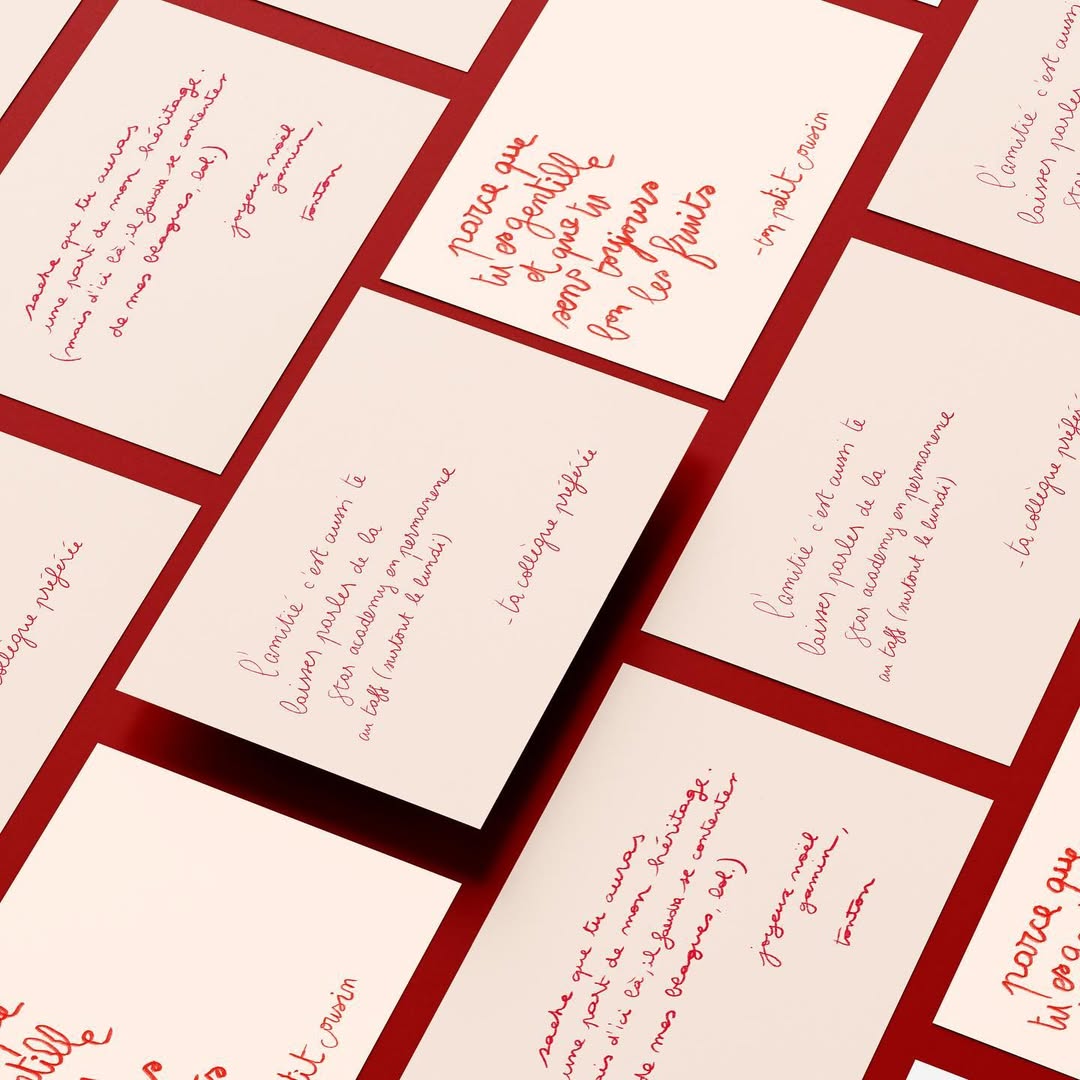 sache que tu auras
une part de mon héritage.
(mais d'ici là, il faudra se contenter
de mes blagues, lol.)
joyeux noël
gamin,
tonton
parce que
tu es gentille
et que tu
sens toujours
bon les fruits
-ton petit cousin
l'amitié c'est aussi
laisser parler
Star
l'amitié c'est aussi te
laisser parler de la
Star academy en permanence
au taff (surtout le lundi)
- ta collègue préférée
l'amitié c'est aussi te
laisser parler de la
Star academy en permanence
au taff (surtout le lundi)
- ta collègue préfér
collègue préférée
sache que tu auras
une part de mon héritage.
ais d'ici là, il faudra se contenter
de mes blagues, lol.)
joyeux noël
gamin,
tonton
ntille
tit cousin
parce que
tu es g